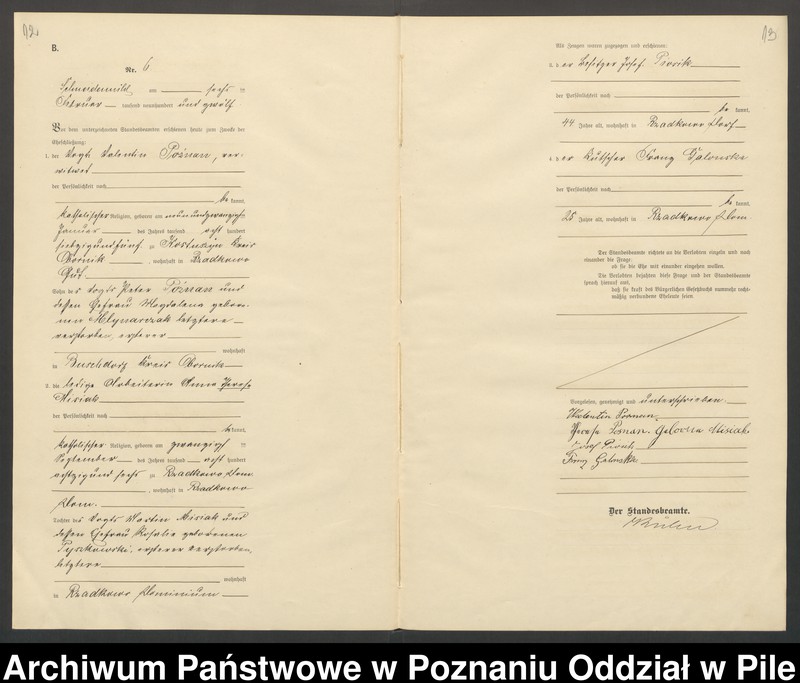 12
B.
Nr. 6
Schneidemühl am sechs ten
Februar tausend neunhundert und zwölf
Vor dem unterzeichneten Standesbeamten erschienen heute zum Zwecke der
Eheschließung:
1. der Vogt Valentin Poźnan, ver-
witwet
der Persönlichkeit nach
be kannt,
katholischer Religion, geboren am neunundzwanzigsten
Januar des Jahres tausend acht hundert
siebzigundfünf zu Kreis
Obornik, wohnhaft in Rzadkowo
Gut.
Sohn des Vogts Peter Poźnan und
dessen Ehefrau Magdalena gebore-
nen Mlynarczak letztere
verstorben, ersterer
wohnhaft
in Buschdorf Kreis Obornik
2. die ledige Arbeiterin Anna Therese
Misiak
der Persönlichkeit nach
bekannt,
katholischer Religion, geboren am zwanzigsten
September des Jahres tausend acht hundert
achtzigundsechs zu Rzadkowo Dom.
, wohnhaft in Rzadkowo
Dom.
Tochter des Vogts Martin Misiak und
dessen Ehefrau Rosalie geborenen
ersterer verstorben,
letztere
wohnhaft
in Rzadkowo Dominium
13
Als Zeugen waren zugezogen und erschienen:
3. der Besitzer Josef
der Persönlichkeit nach
be kannt,
44 Jahre alt, wohnhaft in Rzadkowo Dorf
4. der Kutscher Franz Galonska
der Persönlichkeit nach
be kannt,
25 Jahre alt, wohnhaft in Rzadkowo Dom.
Der Standesbeamte richtete an die Verlobten einzeln und nach
einander die Frage:
ob sie die Ehe mit einander eingehen wollen.
Die Verlobten bejahten diese Frage und der Standesbeamte
sprach hierauf aus,
daß sie kraft des Bürgerlichen Gesetzbuchs nunmehr recht-
mäßig verbundene Eheleute seien
Vorgelesen, genehmigt und unterschrieben
Walentin Poznan
Theresa Posnan geborna Misiak
Josef
Franz Galonska
Der Standesbeamte.
Archiwum Państwowe w Poznaniu Oddział w Pile